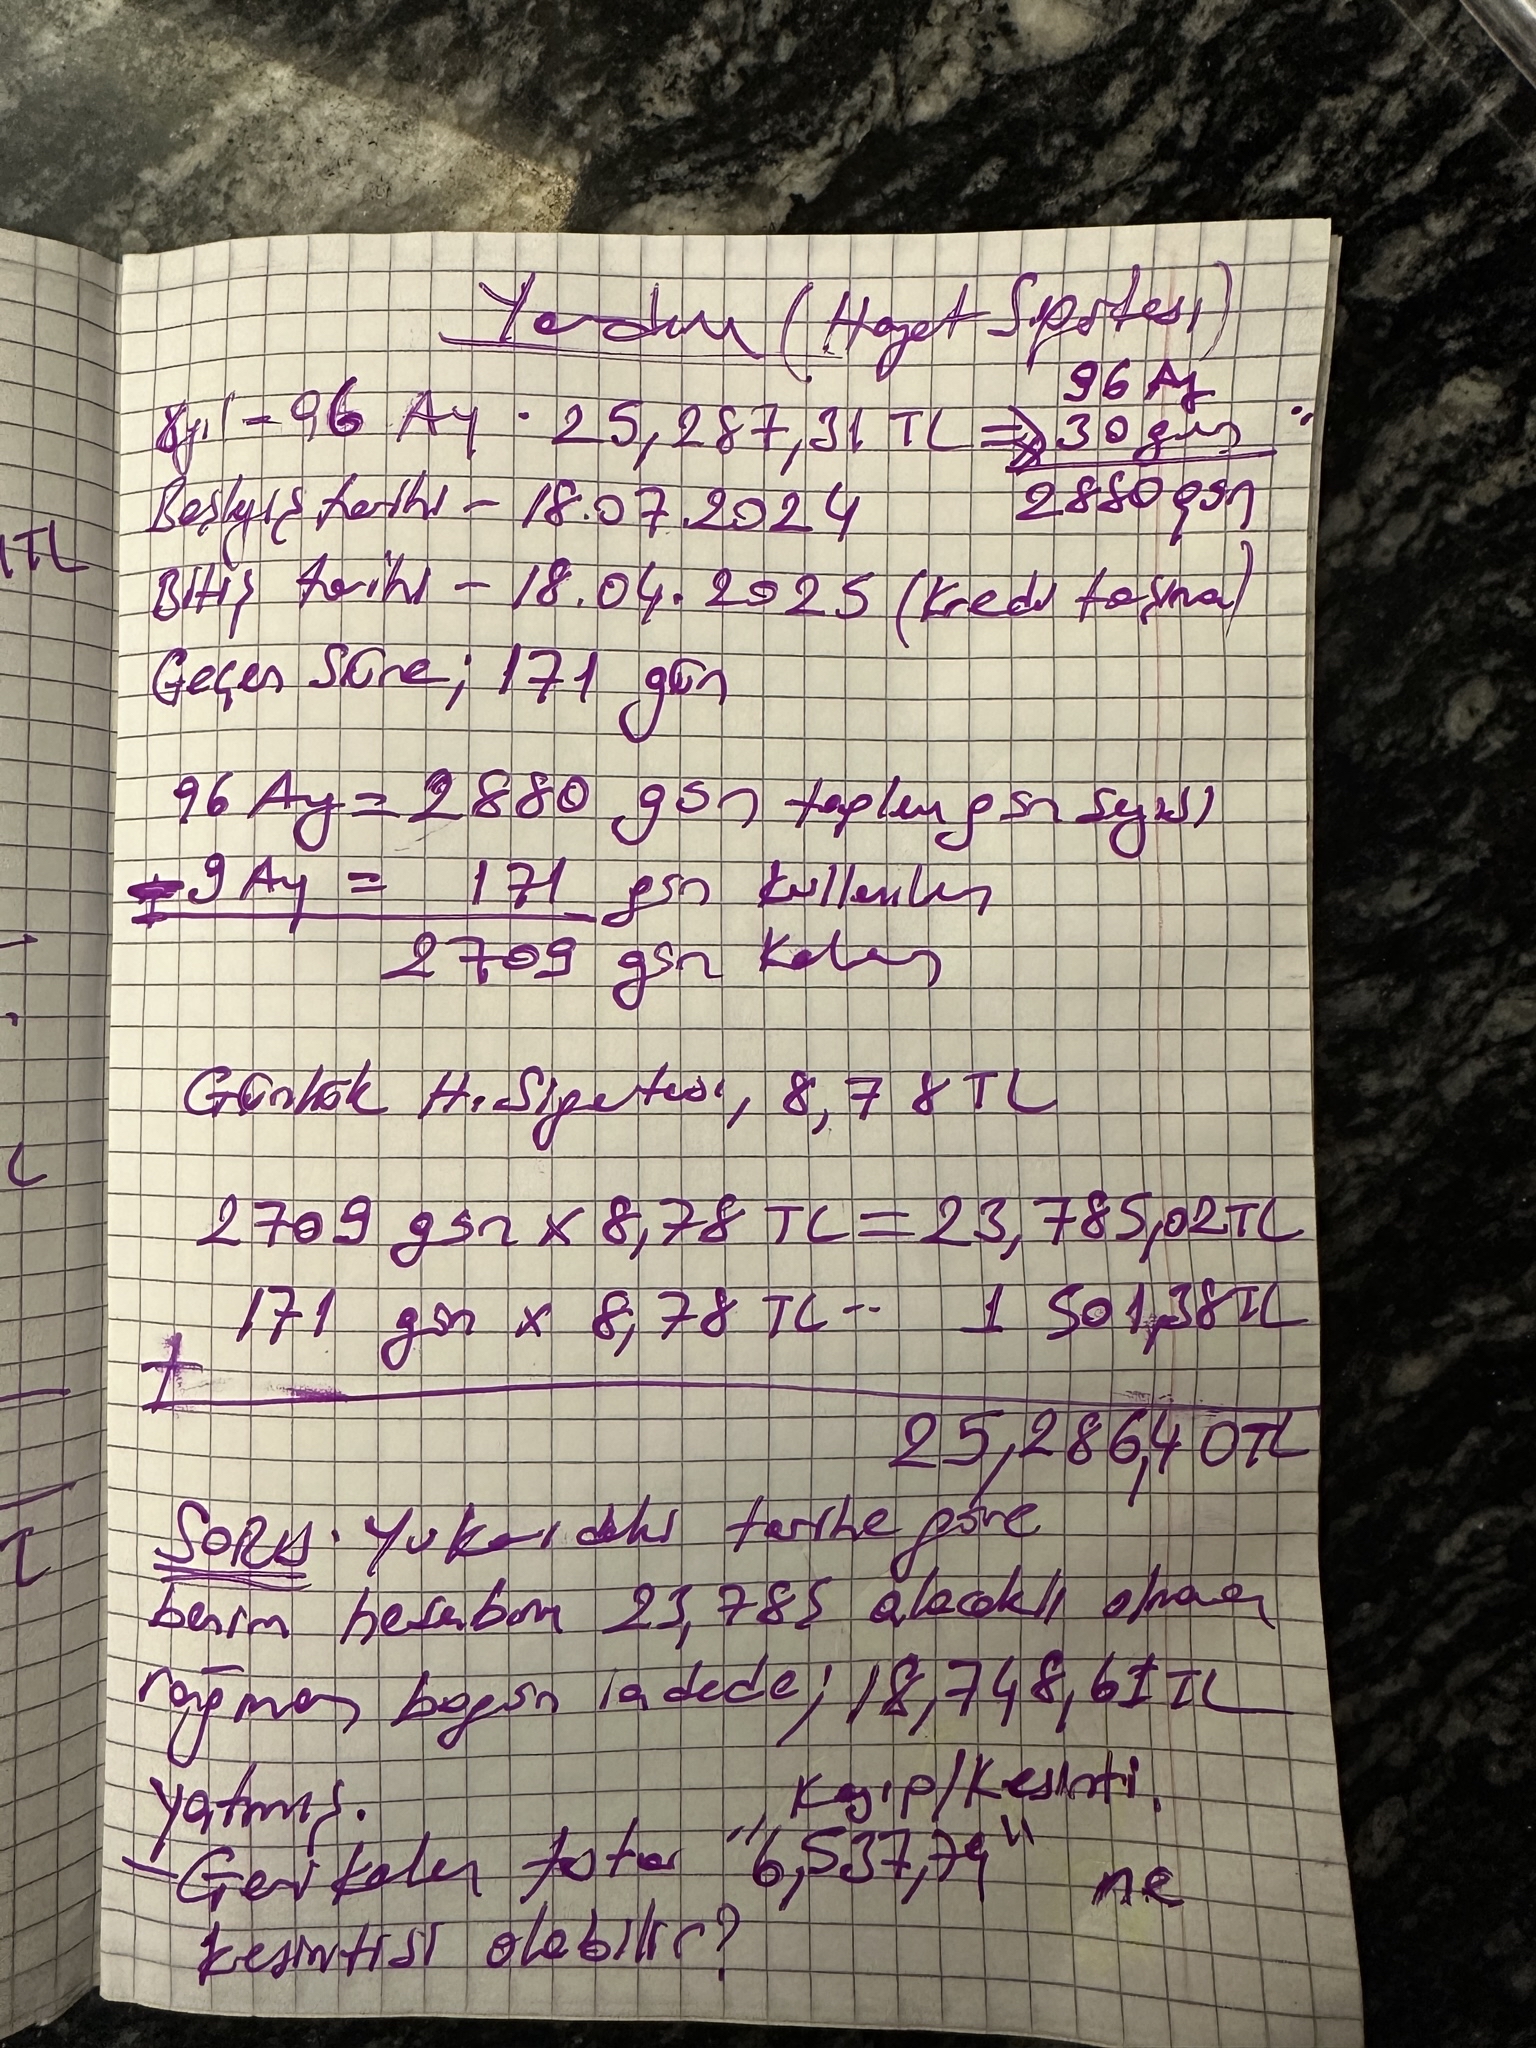 Yardım (Hayat Sigortası)
8yıl - 96 Ay · 25,287,31 TL => 96 Ay
x 30 gün
2880 gün
Başlgıç tarihi - 18.07.2024
Bitiş tarihi - 18.04.2025 (Kredi taşıma)
Geçen Süre; 171 gün
96 Ay = 2880 gün toplam gün sayısı
- 9 Ay = 171 gün kullanılan
2709 gün kalan
Günlük H. Sigortası, 8,78 TL
2709 gün x 8,78 TL = 23,785,02 TL
171 gün x 8,78 TL -- 1 501,38 TL
+
25,286,40 TL
SORU · Yukarıdaki tarihe göre
benim hesabım 23,785 alacaklı olmama
rağmen bugün iadede; 18,748,61 TL
yatmış. Kayıp/Kesinti.
- Geri kalan tutar "6,537,79" ne
kesintisi olabilir?
TL
L